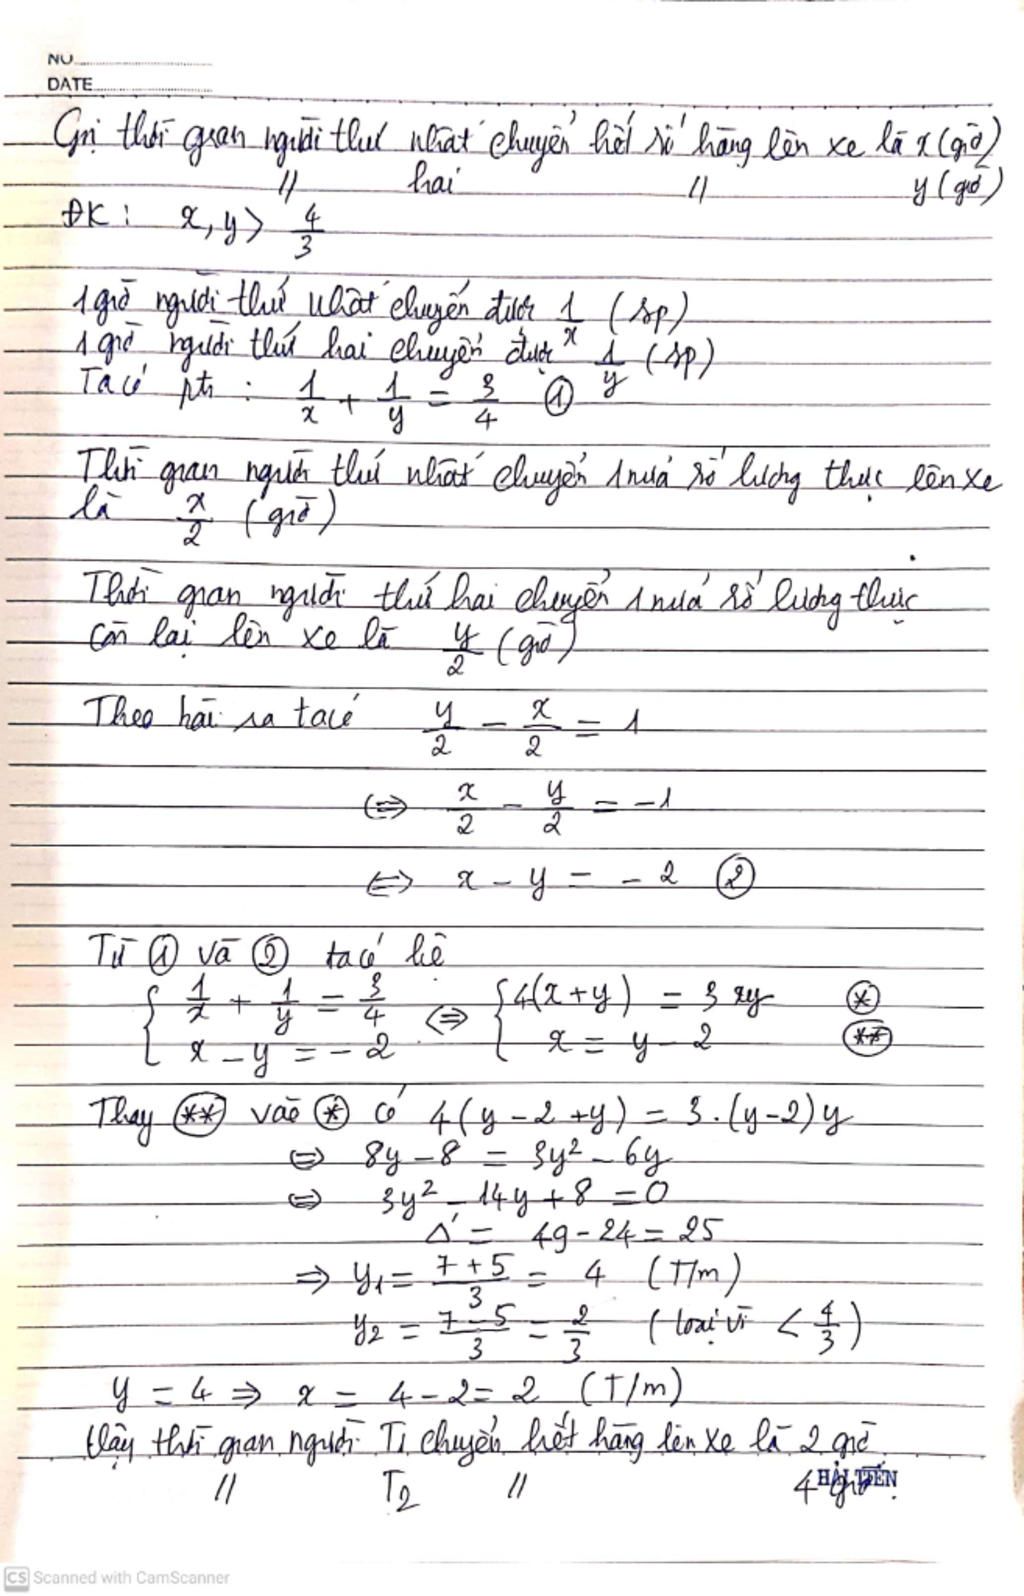 NO
DATE
Gọi thời gian người thứ nhất chuyển hết số hàng lên xe là x (giờ)
// hai // y (giờ)
ĐK: x, y > 4/3
1 giờ người thứ nhất chuyển được 1/x (sp)
1 giờ người thứ hai chuyển được 1/y (sp)
Ta có pt: 1/x + 1/y = 3/4 ①
Thời gian người thứ nhất chuyển 1 nửa số lương thực lên xe
là x/2 (giờ)
Thời gian người thứ hai chuyển 1 nửa số lương thực
còn lại lên xe là y/2 (giờ)
Theo bài ra ta có y/2 - x/2 = 1
⇔ x/2 - y/2 = -1
⇔ x - y = -2 ②
Từ ① và ② ta có hệ
{ 1/x + 1/y = 3/4 ⇔ { 4(x+y) = 3xy (*)
x - y = -2 x = y - 2 (**)
Thay (**) vào (*) có 4(y-2+y) = 3.(y-2)y
⇔ 8y - 8 = 3y² - 6y
⇔ 3y² - 14y + 8 = 0
Δ' = 49 - 24 = 25
⇒ y₁ = (7+5)/3 = 4 (T/m)
y₂ = (7-5)/3 = 2/3 (loại vì < 4/3)
y = 4 ⇒ x = 4 - 2 = 2 (T/m)
Vậy thời gian người T1 chuyển hết hàng lên xe là 2 giờ
// T2 // 4 giờ.
HẢI TIẾN
CS Scanned with CamScanner